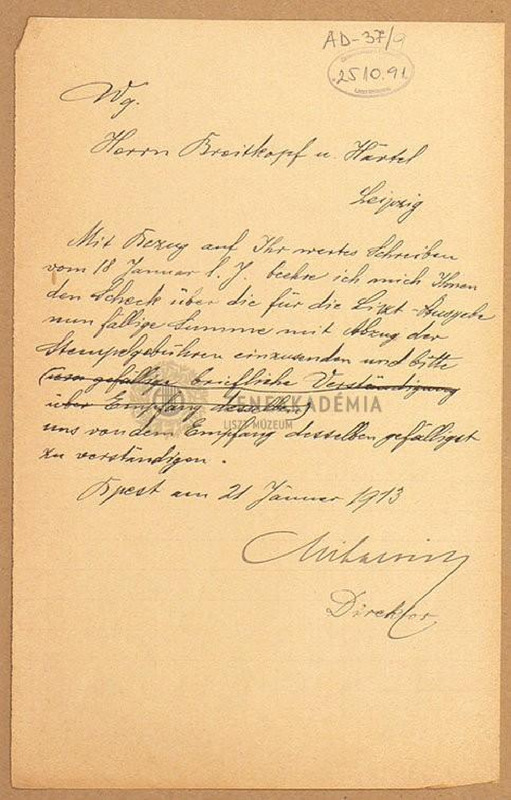 AD-37/9
25/10.91
Wg.
Herrn Breitkopf u. Härtel
Leipzig
Mit Bezug auf Ihr wertes Schreiben
vom 18 Januar l. J. beehre ich mich Ihnen
den Scheck über die für die Liszt-Ausgabe
nun fällige Summe mit Abzug der
Stempelgebühren einzusenden und bitte
um gefällige briefliche Verständigung
über Empfang desselben
uns von dem Empfang desselben gefälligst
zu verständigen.
Bpest am 21 Jänner 1913
Direktor
ZENEAKADÉMIA
LISZT MÚZEUM